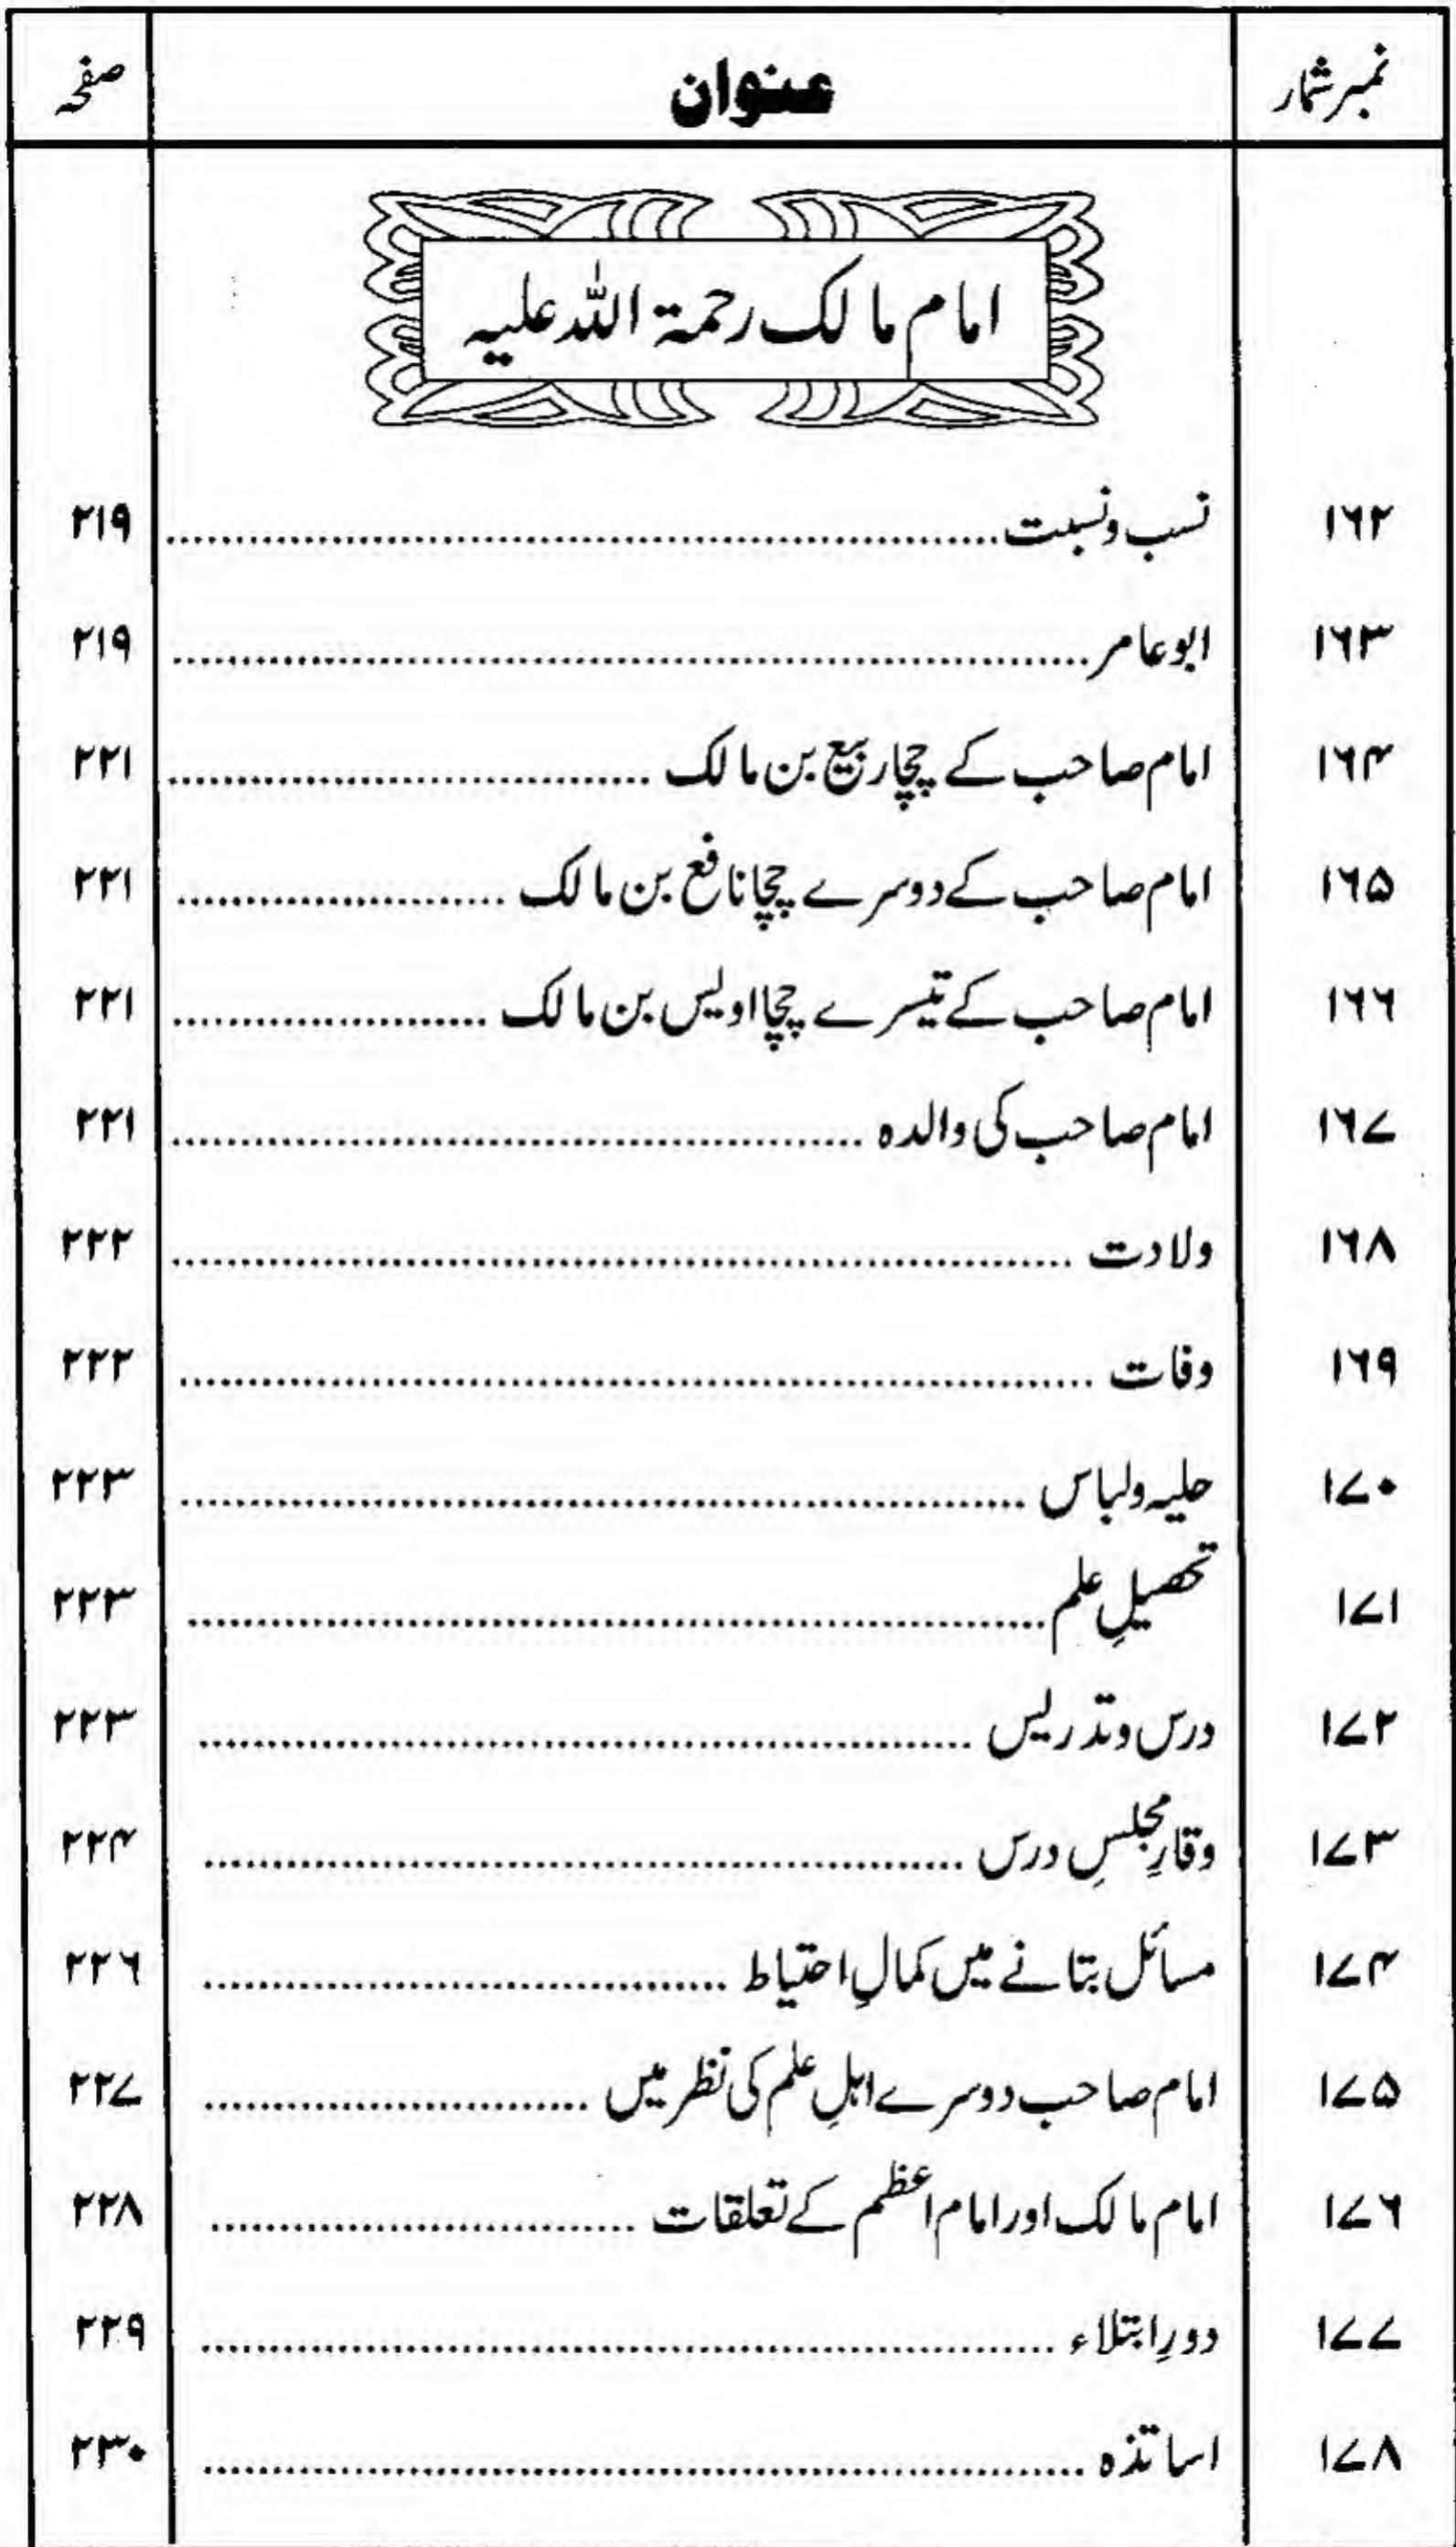 نمبر شمار عنوان صفحہ
امام مالک رحمۃ اللہ علیہ
۱۶۲ نسب ونسبت ........ ۲۱۹
۱۶۳ ابو عامر ........ ۲۱۹
۱۶۴ امام صاحب کے چچا ربیع بن مالک ........ ۲۲۱
۱۶۵ امام صاحب کے دوسرے چچا نافع بن مالک ........ ۲۲۱
۱۶۶ امام صاحب کے تیسرے چچا اویس بن مالک ........ ۲۲۱
۱۶۷ امام صاحب کی والدہ ........ ۲۲۱
۱۶۸ ولادت ........ ۲۲۲
۱۶۹ وفات ........ ۲۲۲
۱۷۰ حلیہ ولباس ........ ۲۲۳
۱۷۱ تحصیلِ علم ........ ۲۲۳
۱۷۲ درس وتدریس ........ ۲۲۳
۱۷۳ وقارِ مجلسِ درس ........ ۲۲۴
۱۷۴ مسائل بتانے میں کمالِ احتیاط ........ ۲۲۶
۱۷۵ امام صاحب دوسرے اہلِ علم کی نظر میں ........ ۲۲۷
۱۷۶ امام مالک اور امام اعظم کے تعلقات ........ ۲۲۸
۱۷۷ دورِ ابتلاء ........ ۲۲۹
۱۷۸ اساتذہ ........ ۲۳۰